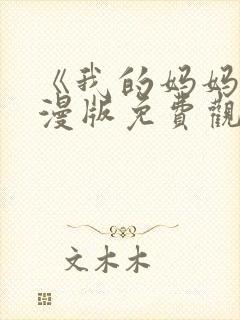 《我的妈妈
漫版免費觀
文木木